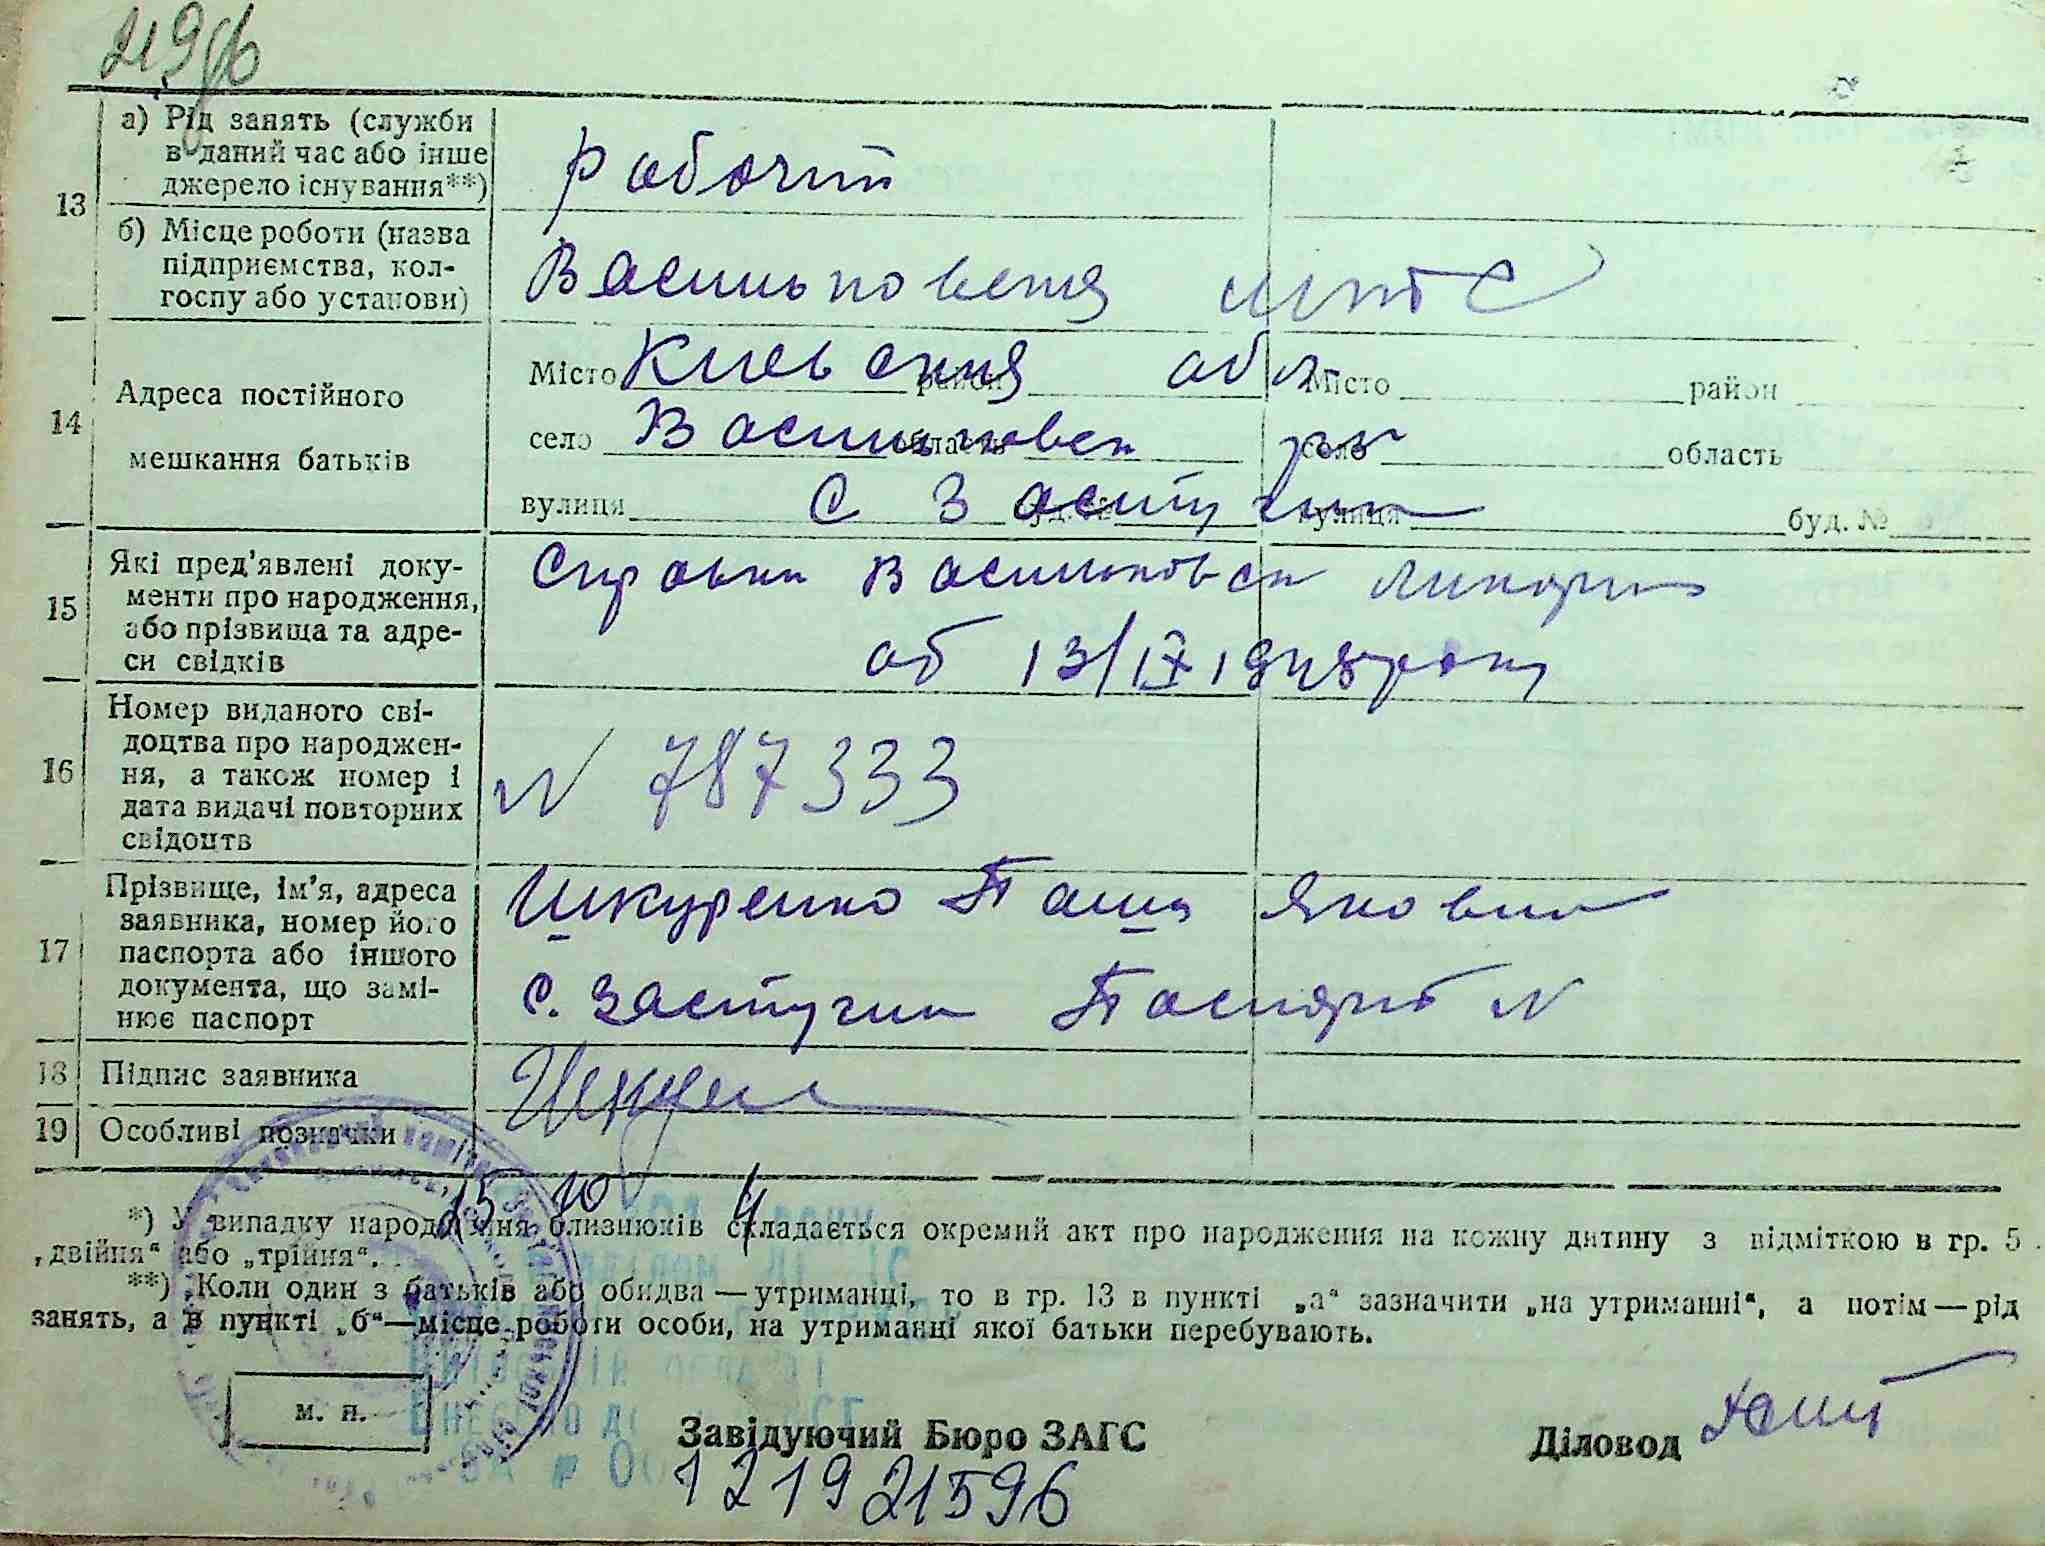 13
а) Рід занять (служби
в даний час або інше
джерело існування**)
рабочий
б) Місце роботи (назва
підприємства, кол-
госпу або установи)
Васильковская МТС
14
Адреса постійного
мешкання батьків
Місто Киевская район обл. Місто район
село Васильковск область село область
вулиця С Застугна буд. № вулиця буд. №
15
Які пред’явлені доку-
менти про народження,
або прізвища та адре-
си свідків
Справка Васильковск
об 13/IX 1948 року
16
Номер виданого сві-
доцтва про народжен-
ня, а також номер і
дата видачі повторних
свідоцтв
N 787333
17
Прізвище, ім’я, адреса
заявника, номер його
паспорта або іншого
документа, що замі-
нює паспорт
Шкуренко Паша Яковл
с. Застугна Паспорт N
18 Підпис заявника
19 Особливі позначки
15 10 4
*) У випадку народження близнюків складається окремий акт про народження на кожну дитину з відміткою в гр. 5
„двійня“ або „трійня“.
**) Коли один з батьків або обидва — утриманці, то в гр. 13 в пункті „а“ зазначити „на утриманні“, а потім — рід
занять, а в пункті „б“—місце роботи особи, на утриманні якої батьки перебувають.
м. п.
Завідуючий Бюро ЗАГС
Діловод
1219 21596